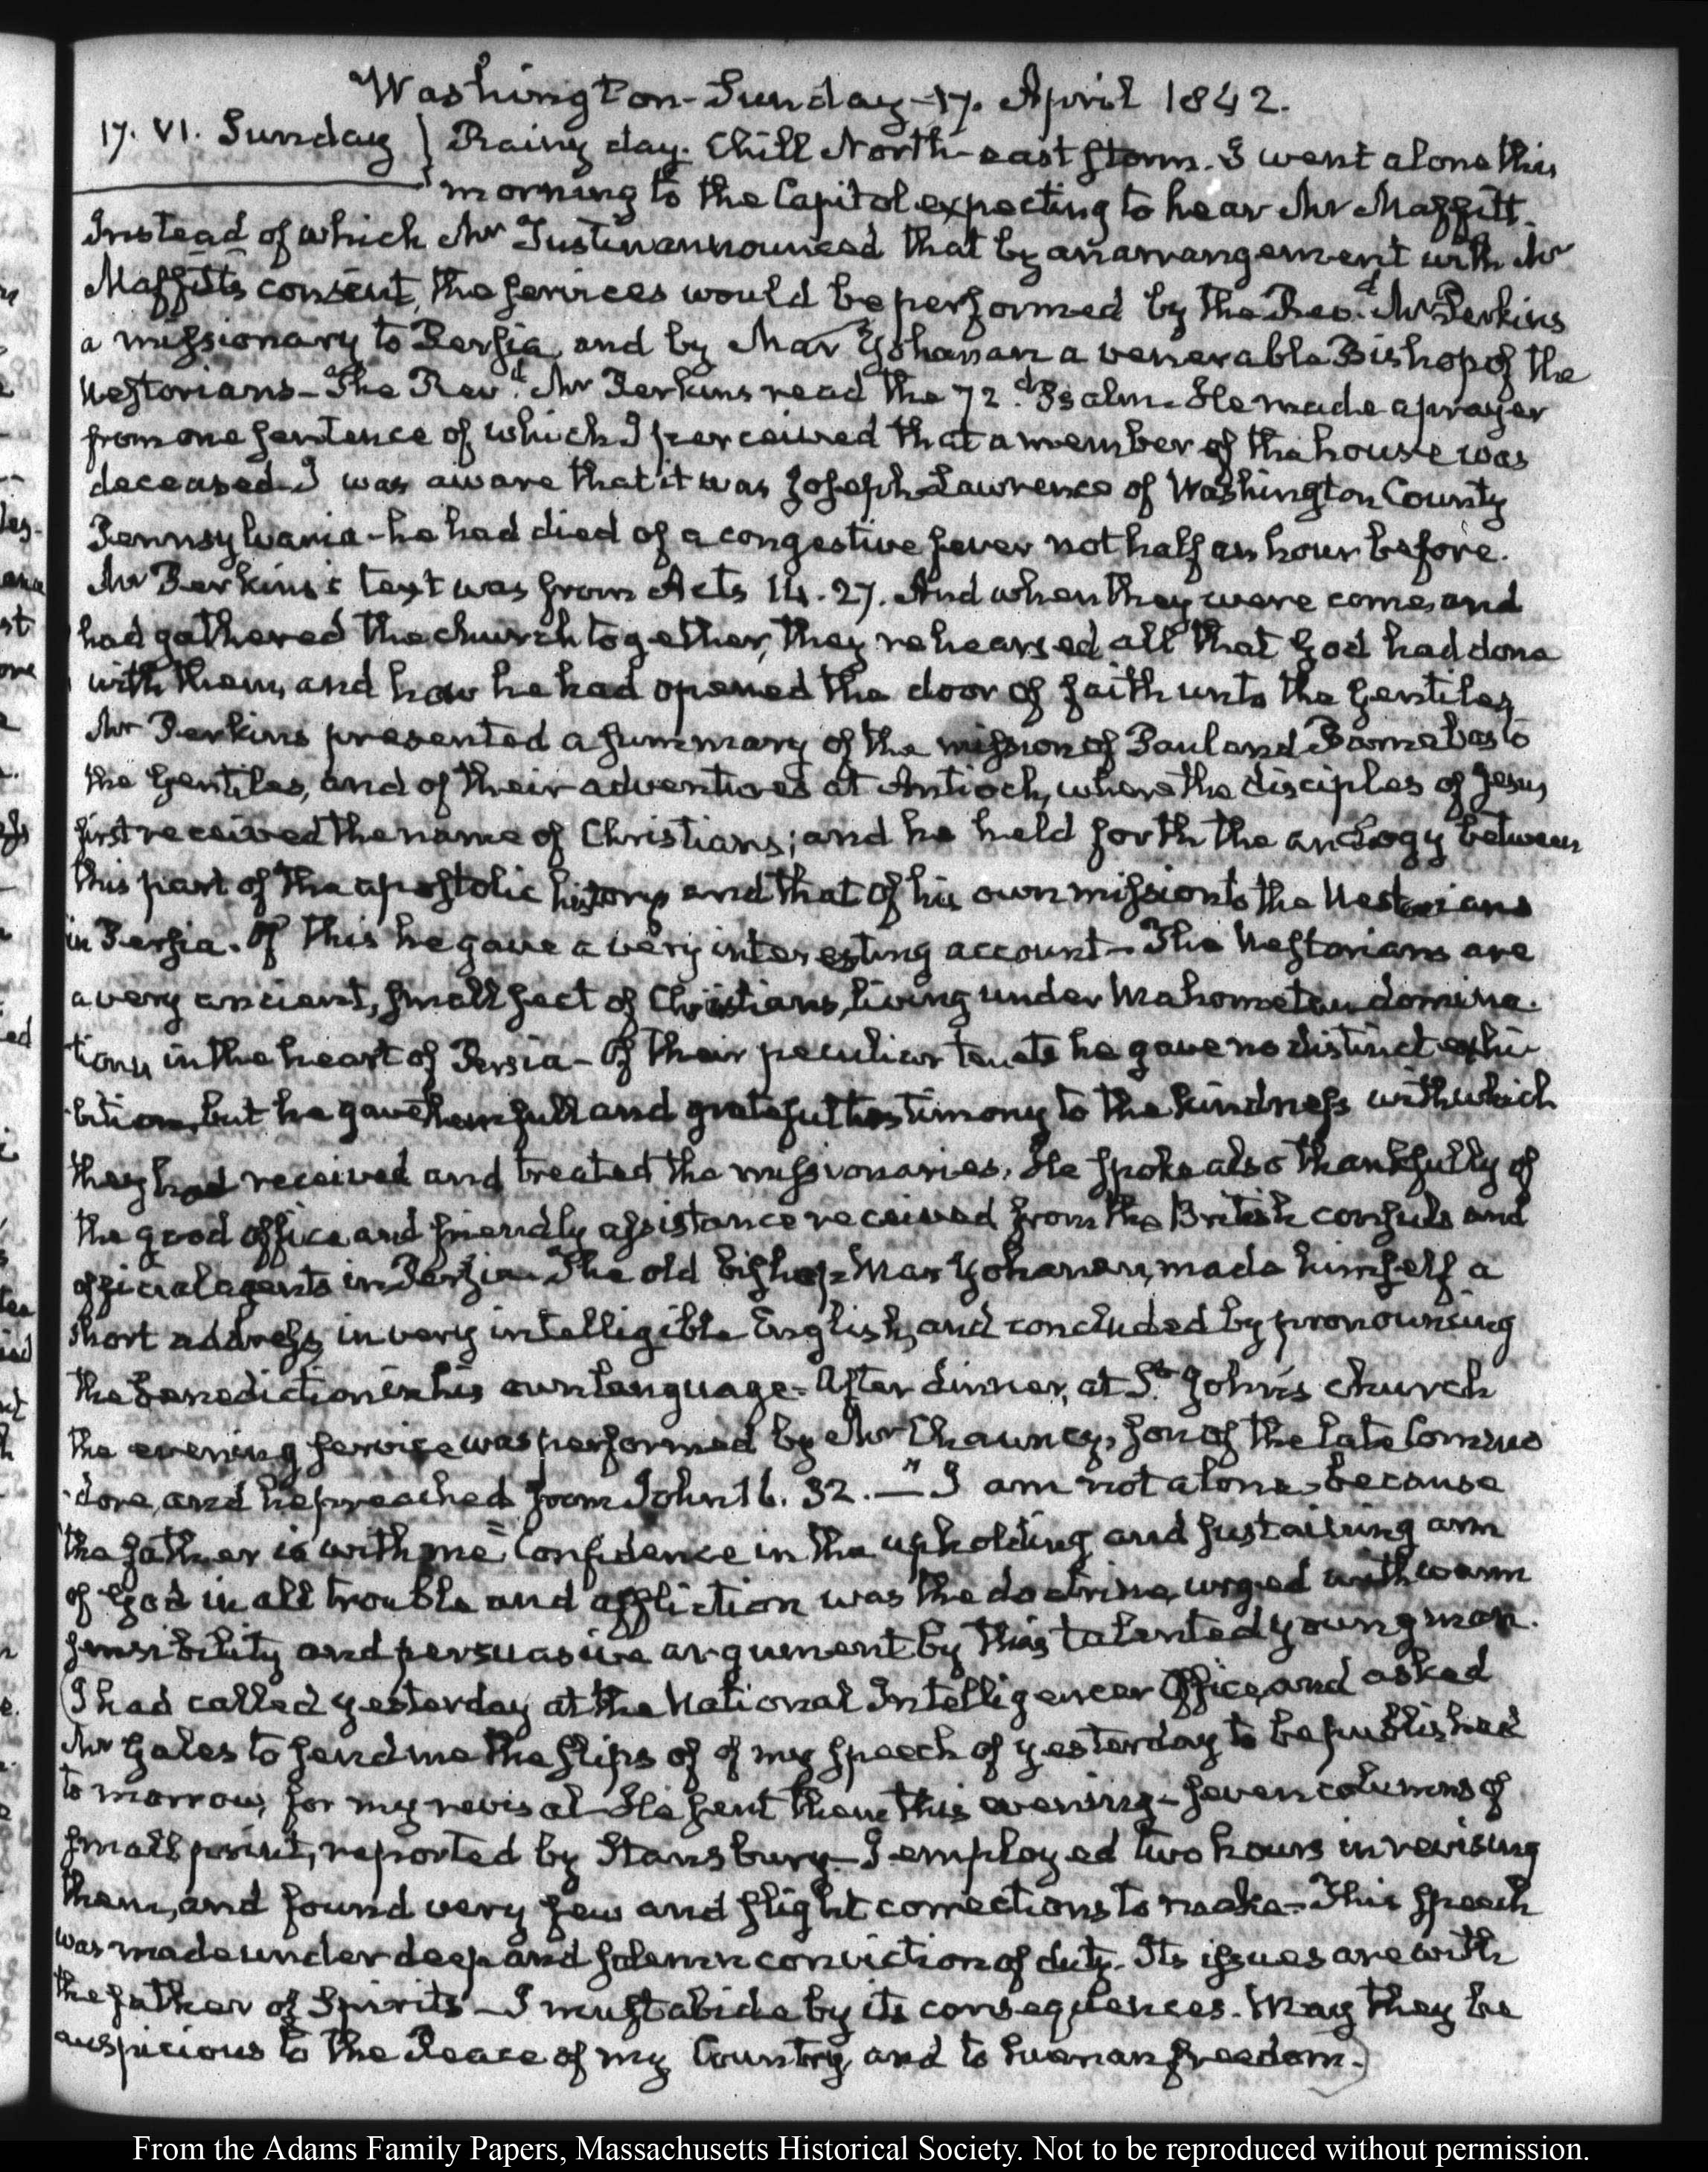 Washington - Sunday - 17. April 1842.
17. VI. Sunday } Rainy day. Chill North-east storm. I went alone this
morning to the Capitol expecting to hear Mr Maffitt.
Instead of which Mr Tustin announced that by an arrangement with Mr
Maffitt's consent, the services would be performed by the Revd. Mr Perkins
a missionary to Persia, and by Mar Yohanan a venerable Bishop of the
Nestorians - The Revd. Mr Perkins read the 72d. Psalm. He made a prayer
from one sentence of which I perceived that a member of the house was
deceased. I was aware that it was Joseph Lawrence of Washington County
Pennsylvania - he had died of a congestive fever not half an hour before.
Mr Perkins's text was from Acts 14. 27. And when they were come, and
had gathered the church together, they rehearsed all that God had done
with them, and how he had opened the door of faith unto the Gentiles,
Mr Perkins presented a summary of the mission of Paul and Barnabas to
the Gentiles, and of their adventures at Antioch, where the disciples of Jesus,
first received the name of Christians; and he held forth the analogy between
this part of the apostolic history and that of his own mission to the Nestorians
in Persia. Of this he gave a very interesting account - The Nestorians are
a very ancient, small sect of Christians, living under Mahometan domina-
tion, in the heart of Persia - Of their peculiar tenets he gave no distinct exhi-
-bition, but he gave them full and grateful testimony to the kindness with which
they had received and treated the missionaries. He spoke also thankfully of
the good office and friendly assistance received from the British consuls and
official agents in Persia. The old Bishop Mar Yohanan, made himself a
short address, in very intelligible English, and concluded by pronouncing
the benediction in his own language - After dinner, at St. John's church
the evening service was performed by Mr Chauncey, son of the late Commo
-dore, and he preached from John 16. 32. — "I am not alone, because
the father is with me" Confidence in the upholding and sustaining arm
of God in all trouble and affliction was the doctrine, urged with warm
sensibility and persuasive argument by this talented young man.
(I had called yesterday at the National Intelligencer Office, and asked
Mr Gales to send me the slips of of my speech of yesterday to be published
to morrow, for my revisal - He sent them this evening - seven columns of
small print, reported by Stansbury - I employed two hours in revising
them, and found very few and slight corrections to make - This speech
was made under deep and solemn conviction of duty. Its issues are with
the father of Spirits - I must abide by its consequences. May they be
auspicious to the Peace of my Country, and to human freedom.)
From the Adams Family Papers, Massachusetts Historical Society. Not to be reproduced without permission.